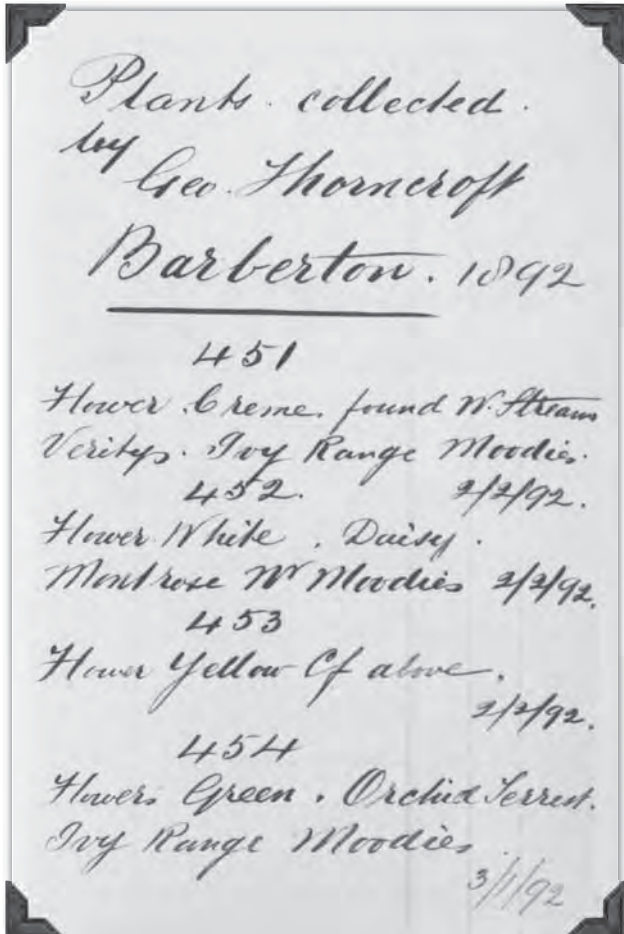 Plants. collected.
by
Geo. Thorncroft
Barberton. 1892
451
Flower. Creme. found Nr. Stream
Veritys. Ivy Range Moodies.
452. 2/2/92.
Flower White. Daisy.
Montrose Nr Moodies 2/2/92.
453
Flower Yellow Cf above.
2/2/92.
454
Flowers Green. Orchid Terrest.
Ivy Range Moodies.
3/1/92